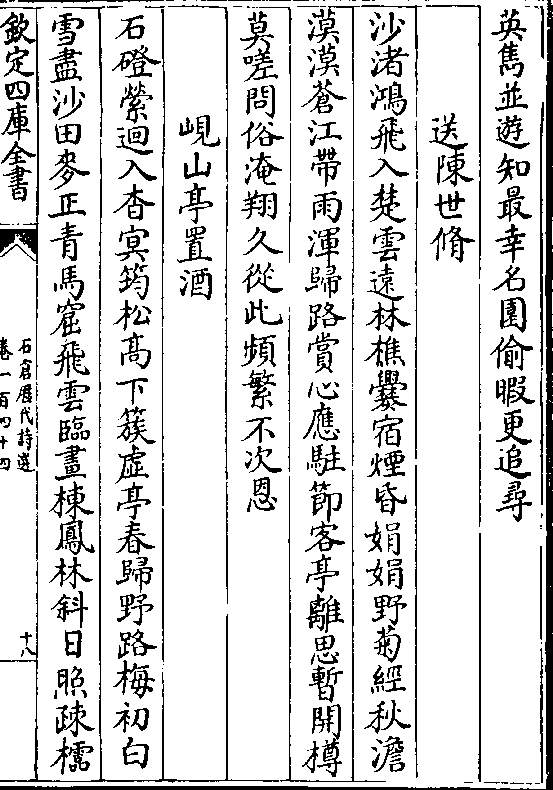 英雋並遊知最幸名園偷暇更追尋
送陳世脩
沙渚鴻飛入楚雲遠林樵爨宿煙昏娟娟野菊經秋澹
漠漠蒼江帶雨渾歸路賞心應駐節客亭離思暫開樽
莫嗟問俗淹翔久從此頻繁不次恩
峴山亭置酒
石磴縈迴入杳冥筠松髙下簇虛亭春歸野路梅初白
雪盡沙田麥正青馬窟飛雲臨畫棟鳳林斜日照疎櫺
欽定四庫全書
石倉厯代詩選
卷一百四十四
十八